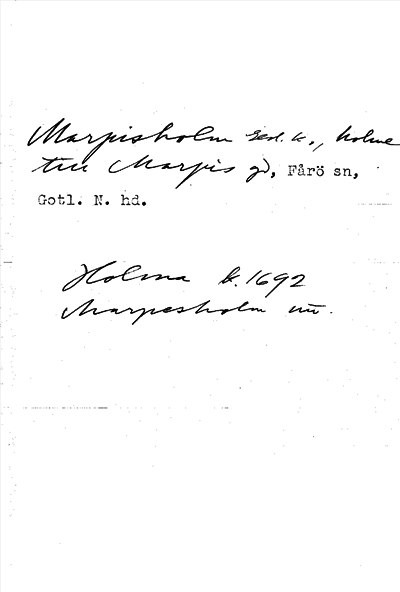 Marpisholm ged. k., holme
till Marpis gd, Fårö sn,
Gotl. N. hd.
Holma k. 1692
Marpesholm uu.